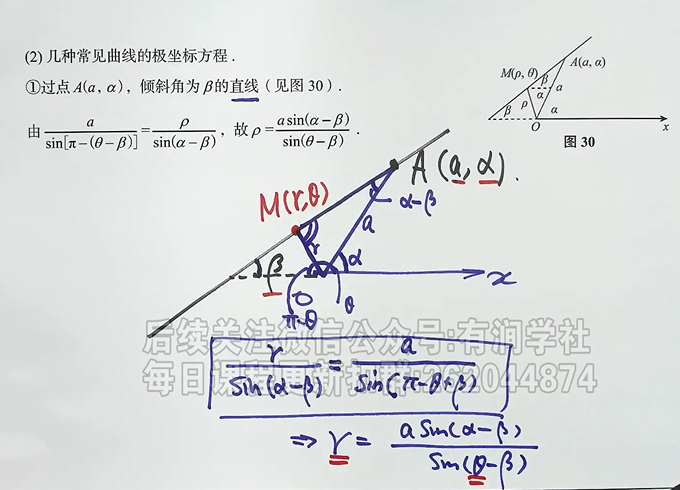 (2) 几种常见曲线的极坐标方程.
①过点 A(a, α), 倾斜角为 β 的直线（见图 30）.
由 a/sin[π-(θ-β)] = ρ/sin(α-β), 故 ρ = a sin(α-β)/sin(θ-β) .
A(a, α)
M(ρ, θ)
β
α
a
ρ
β
α
O
x
图 30
A (a, α).
M(r,θ)
α-β
a
r
β
α
x
O
θ
π-θ
后续关注微信公众号:有润学社
r/Sin(α-β) = a/Sin(π-θ+β)
⇒ r = a Sin(α-β)/Sin(θ-β)